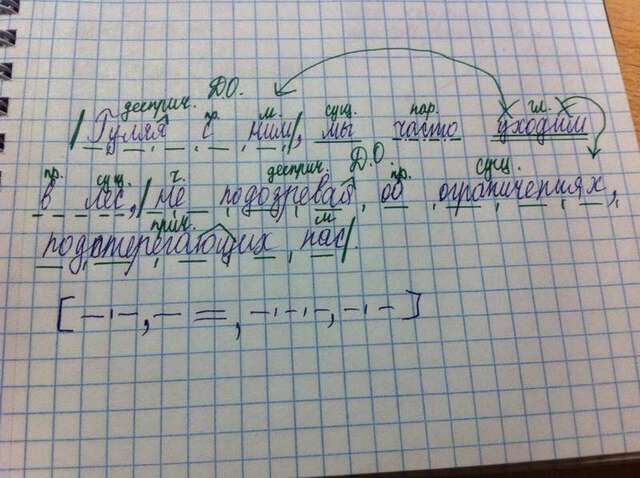 дееприч. Д.О.
пр. м. сущ. нар. гл.
Гуляя с ним, мы часто уходим
пр. сущ. ч. дееприч. Д.О. пр. сущ.
в лес, не подозревая об ограничениях,
прич. м.
подстерегающих нас.